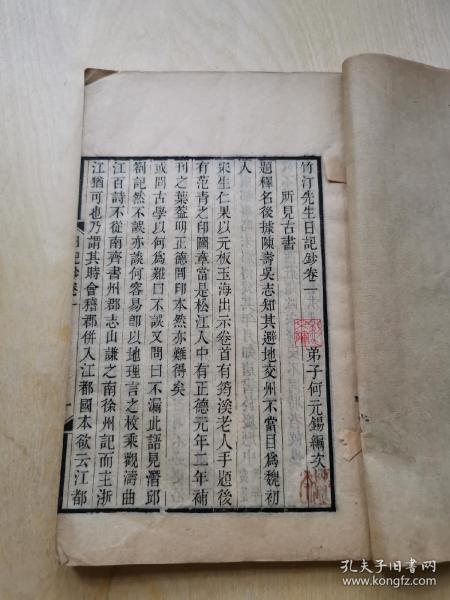 竹汀先生日記鈔卷一
弟子何元錫編次
所見古書
題釋名後據陳壽吳志知其避地交州不當目爲魏初
人
宋生仁果以元板玉海出示卷首有筠溪老人手題後
有范青之印圖章當是松江人中有正德元年二年補
刊之葉葢明正德間印本然亦難得矣
或問古學以何爲難曰不誤又問曰不漏此語見潛邱
劄記然不誤亦談何容易卽以地理言之枚乘觀濤曲
江百詩不從南齊書州郡志山謙之南徐州記而主浙
江猶可也乃謂其時會稽郡併入江都國本欲云江都
日記鈔卷一
孔夫子旧书网
www.kongfz.com